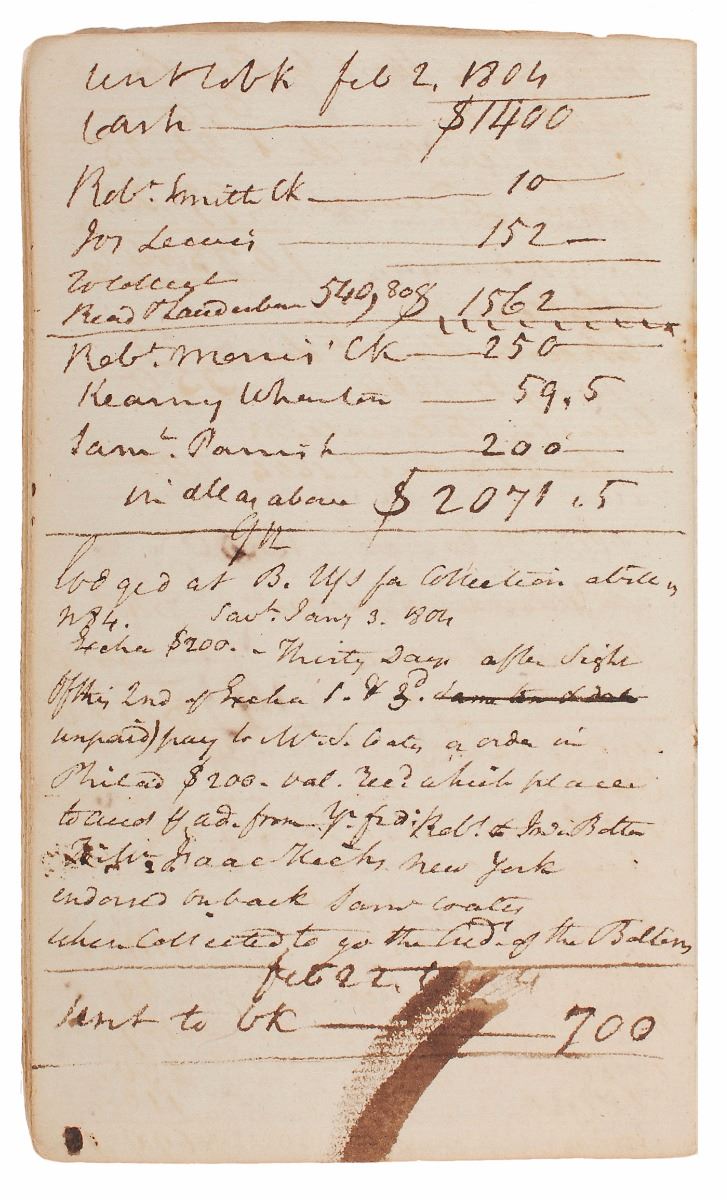 Sent to bk feb 2. 1804
Cash $1400
Robt. Smith Ck 10
Jos Lewis 152
To Collect
Read 540,80 $ 1562
Robt. Morris' Ck 250
Kearny Wharton 59.5
Saml. Parrish 200
in all as above $ 2071.5
lodged at B. US for Collection a bill
No 84. Savh. Jany 3. 1804
Excha $200. Thirty Days after Sight
of this 2nd of Excha 1. & 3d.
unpaid) pay to Mr S. Coates or order in
Philad $200. val. Recd which place
to acct & ad. from Yr frds Robt. & Jno Bolton
Isaac Hicks New York
endorsed on back Saml Coates
when Collected to go the Cred. of the Boltons
feb 22.
Sent to bk 700